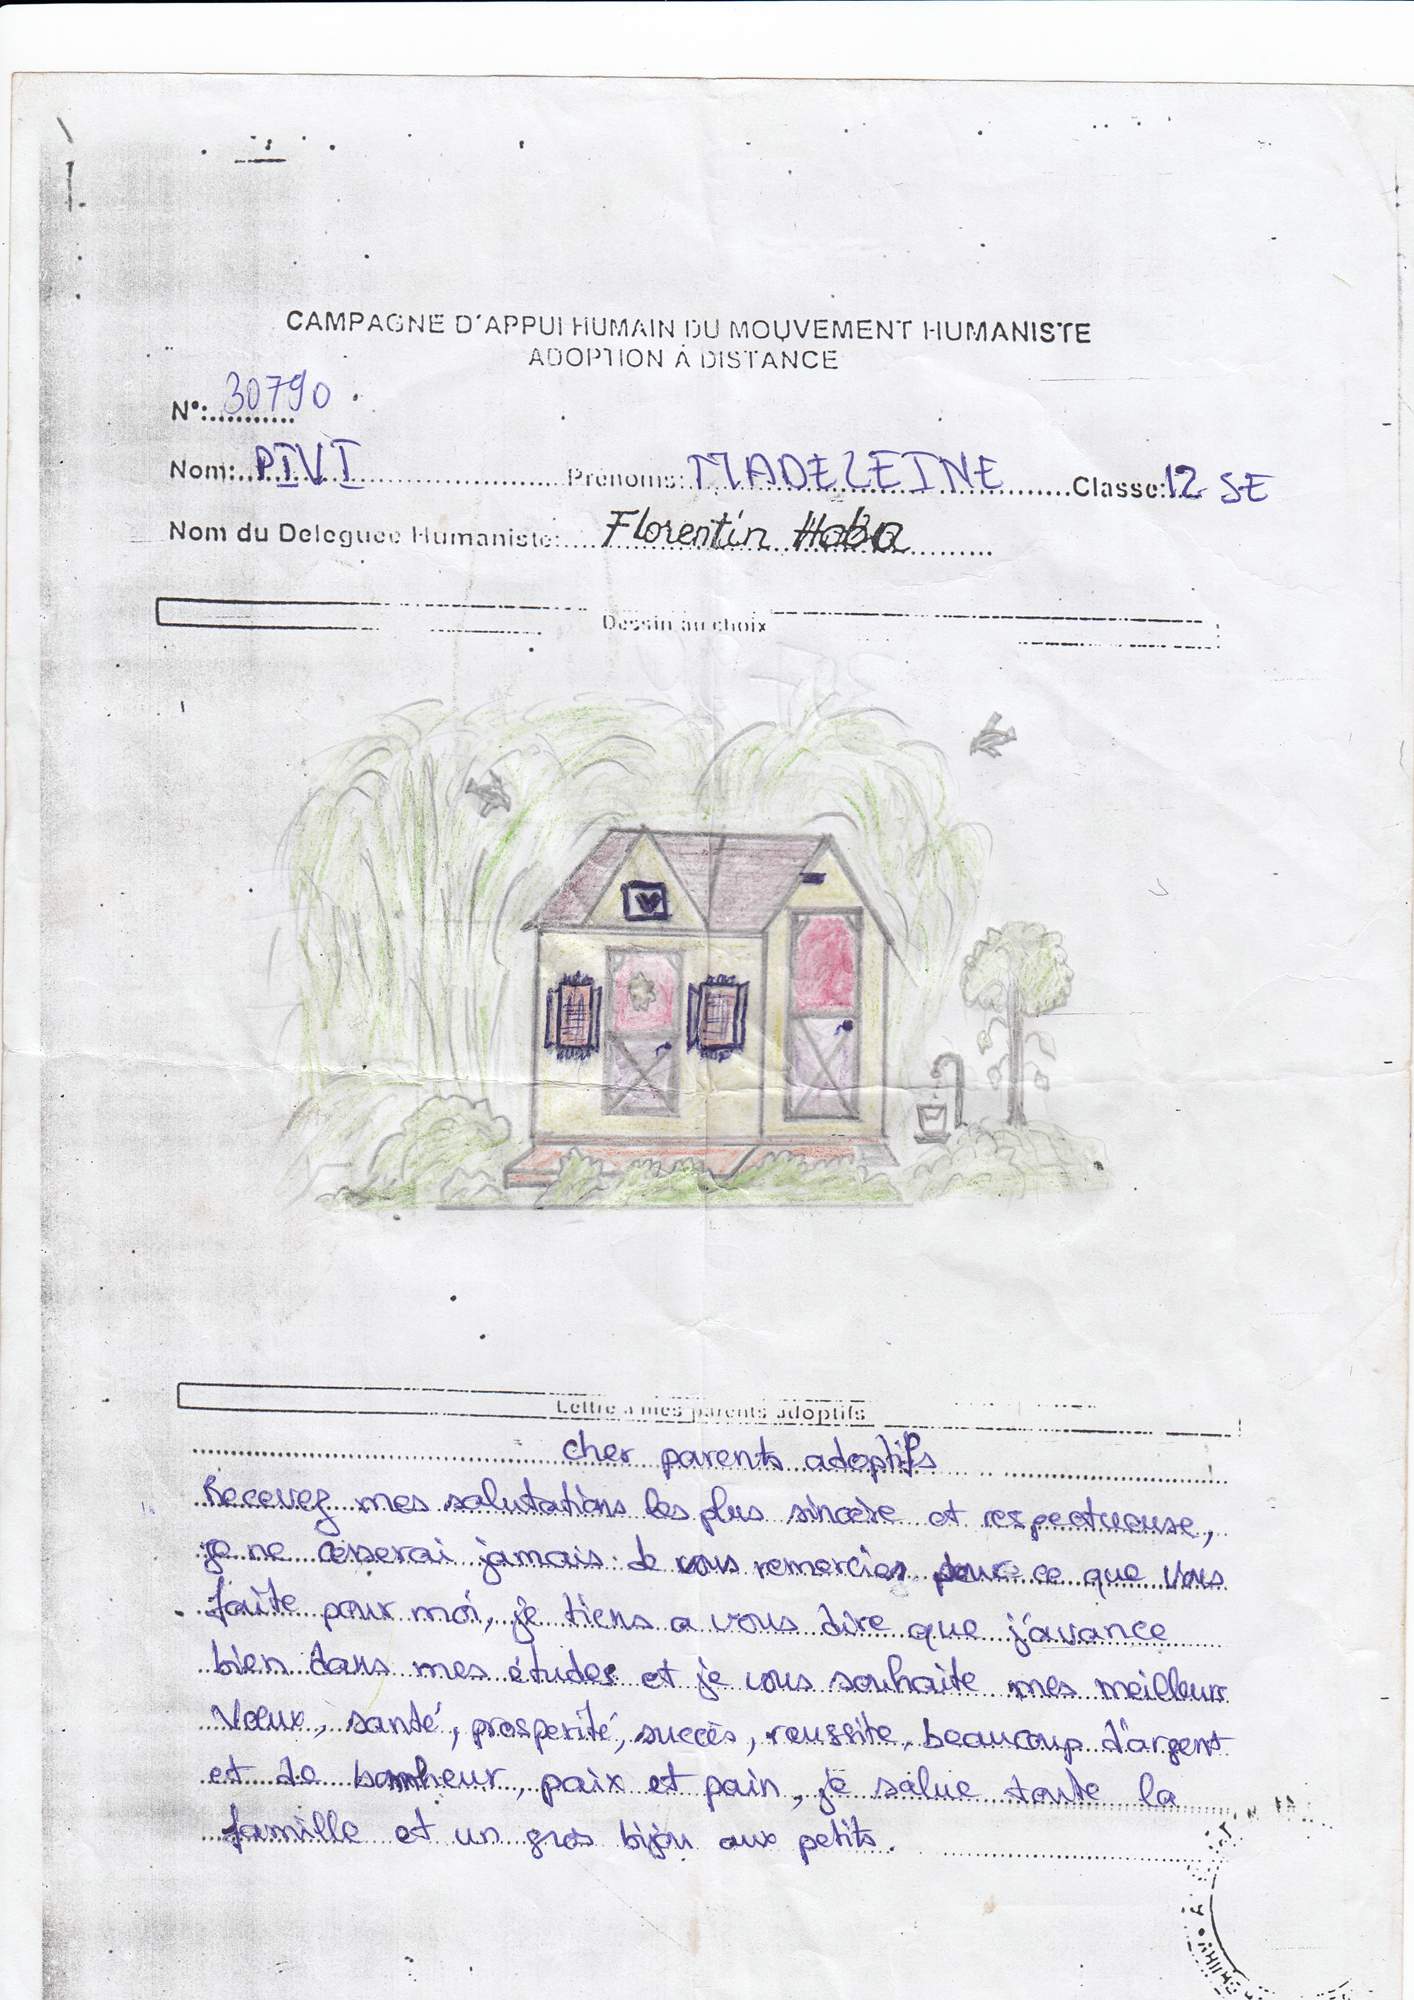 CAMPAGNE D'APPUI HUMAIN DU MOUVEMENT HUMANISTE
ADOPTION À DISTANCE
N°: 30790
Nom: PIVI Prénoms: MADELEINE Classe: 12 SE
Nom du Deleguee Humaniste: Florentin Haba
Dessin au choix
Lettre a mes parents adoptifs
cher parents adoptifs
Recevez mes salutations les plus sincère et respectueuse,
je ne cesserai jamais de vous remercier pour ce que vous
faite pour moi, je tiens a vous dire que j'avance
bien dans mes études et je vous souhaite mes meilleur
Vœux, santé, prosperité, succès, reussite, beaucoup d'argent
et de bonheur, paix et pain, je salue toute la
famille et un gros bijou aux petits.